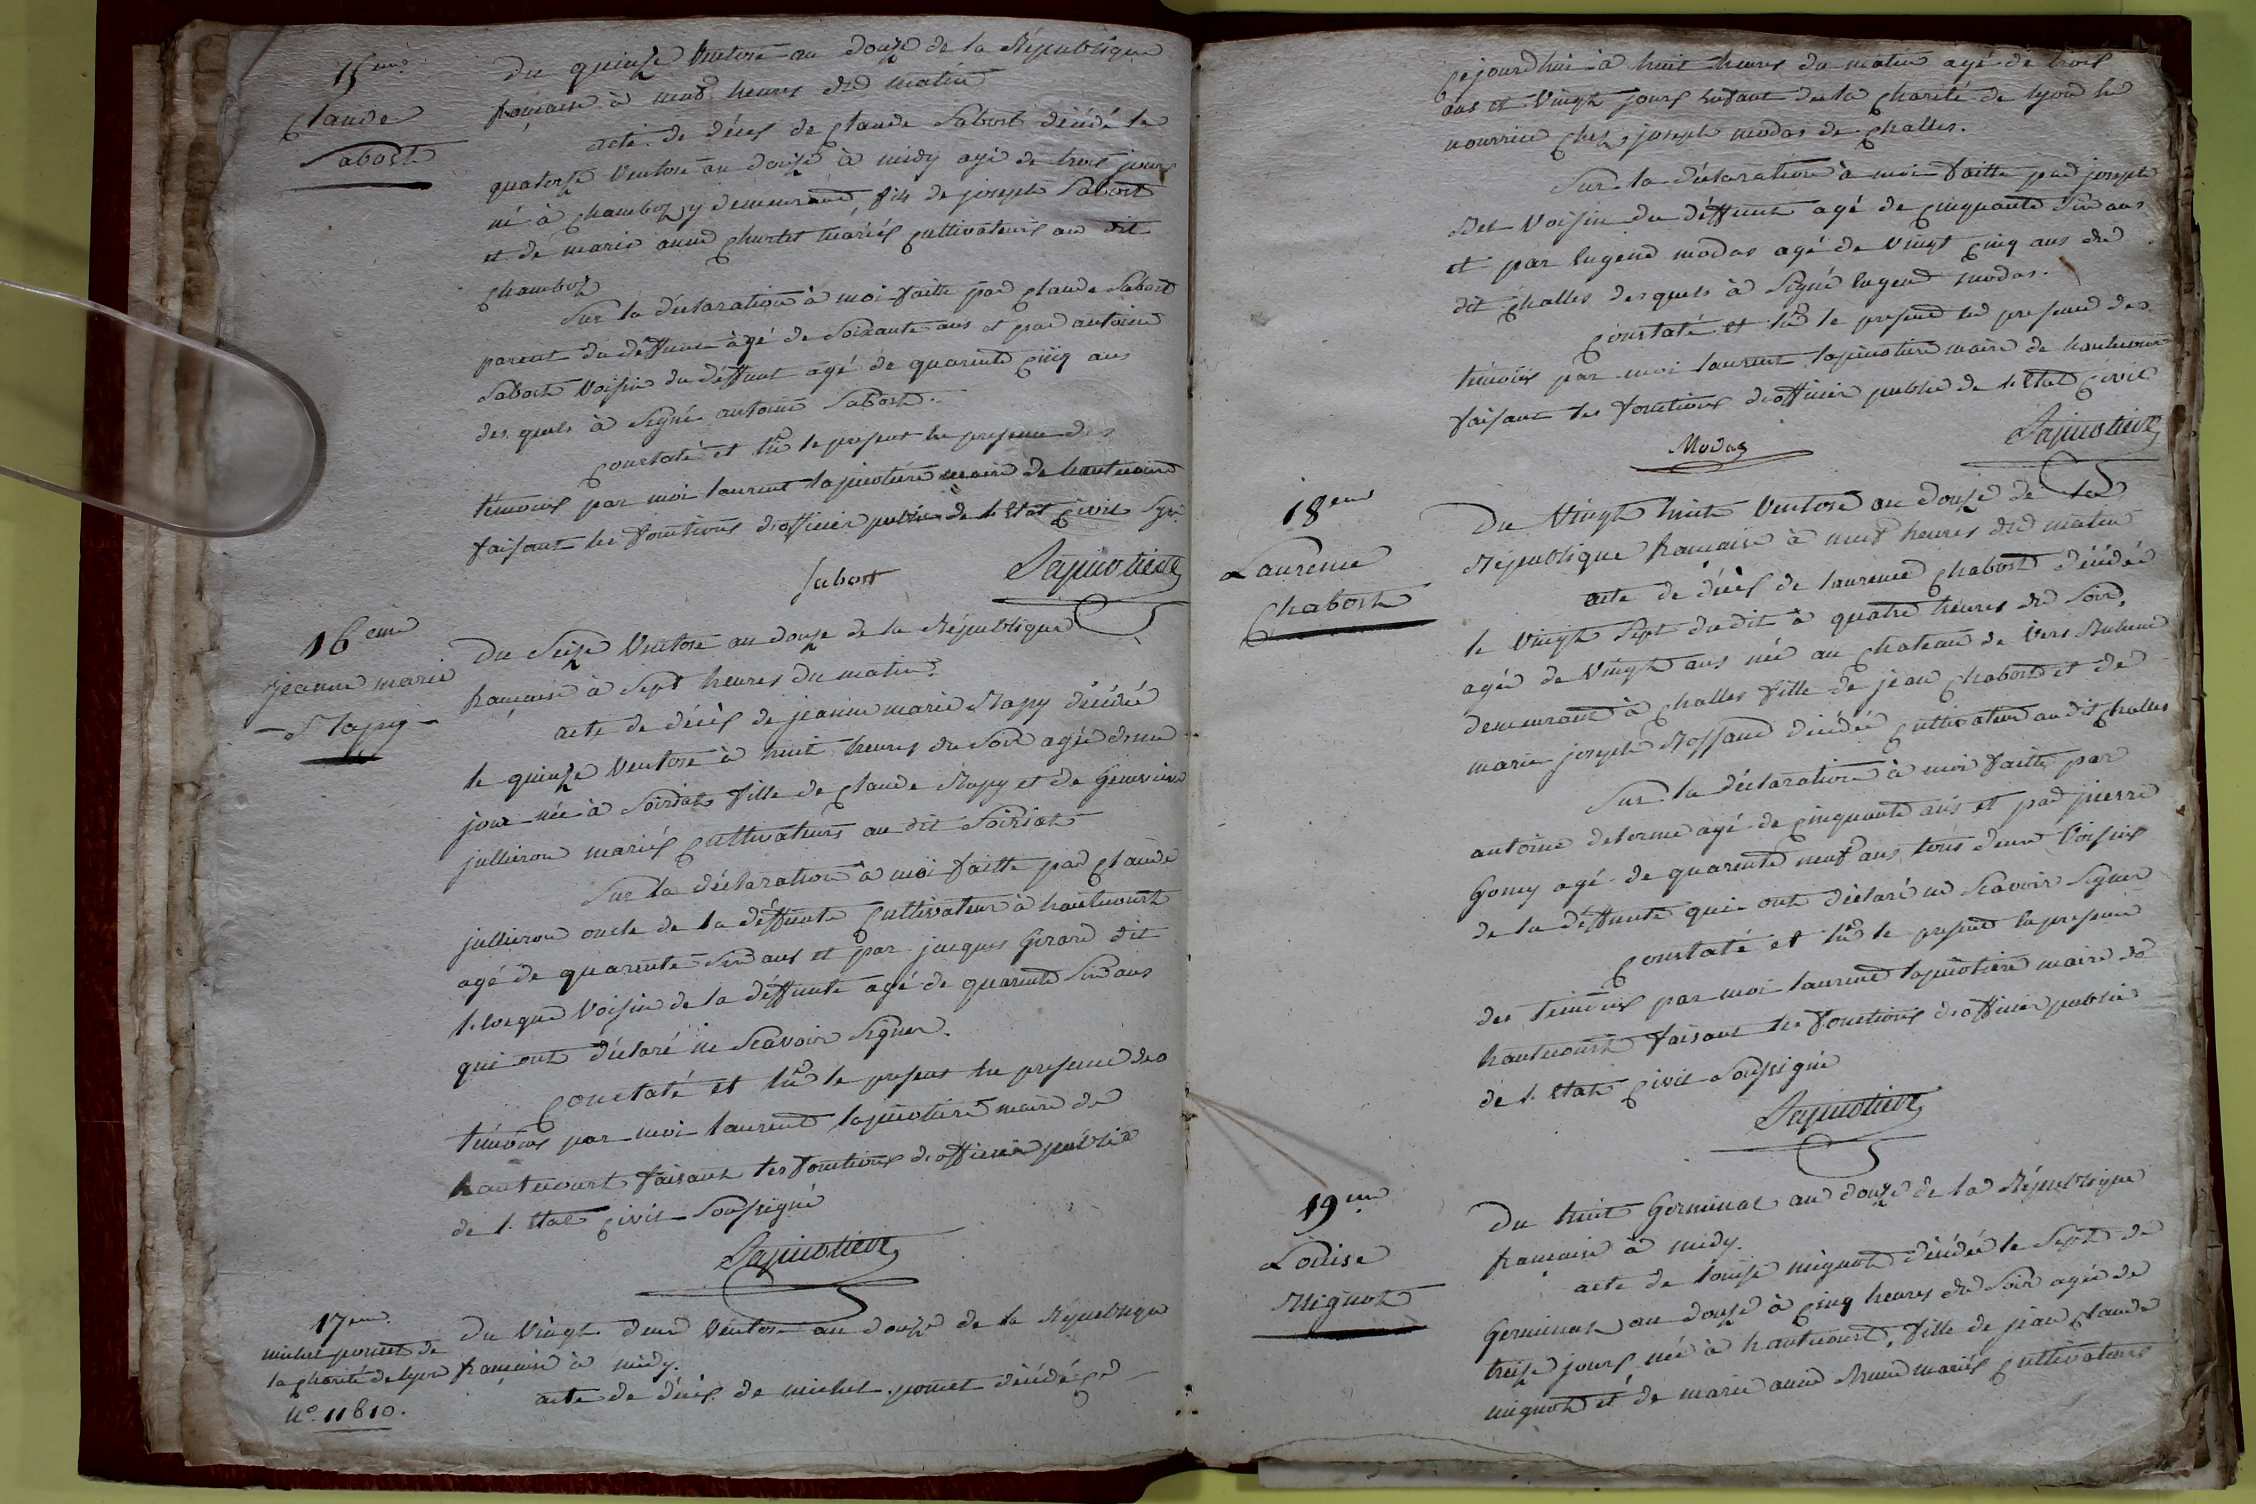 15eme
Claude
Sabost
Du quinze Ventose an douze de la République
françaises à neuf heures du matin
acte de déces de Claude Sabost décédé le
quatorze Ventose an douze à midy agé de trois jours
né à Chamboz y demeurand, fils de joseph Sabost
et de marie anne Churlet mariés Cultivateurs au dit
Chamboz
Sur la déclaration à moi faitte par Claude Sabost
parent du déffunt àgé de Soixante ans et par antoine
Sabost Voisin du déffunt agé de quarente Cinq ans
des quels à Signé antoine Sabost.
Constaté et lu le present en presence des
témoins par moi laurent lapinotiere maire de hautecourt
faisant les fonctions d'officier public de l. Etat Civil
Sabost
Lapinotiere
16eme
jeanne marie
Rapy
Du Seize Ventose an douze de la République
française à Sept heures du matin.
acte de décès de jeanne marie Rapy décédée
le quinze Ventose à huit heures du Soir agée d'un
jour née à Soiriat fille de Claude Rapy et de Genevieve
jullieron mariés Cultivateurs au dit Soiriat
Sur la déclaration à moi faitte par Claude
jullieron oncle de la déffunte Cultivateur à hautecourt
agé de quarente Six ans et par jacques Girard dit
Voisin de la déffunte agé de quarente Six ans
qui ont déclaré ne Scavoir Signer.
Constaté et lu le present en presence des
témoins par moi laurend lapinotiere maire de
hautecourt faisant les fonctions d'officier public
de l. Etat Civil Soussigné
Lapinotiere
17eme
michel pomet de
la Charité de lyon
N° 11810.
Du Vingt deux Ventose an douze de la République
française à midy.
acte de décès de michel pomet décédé
Cejourdhui à huit heures du matin agé de trois
ans et Vingt jours enfant de la Charité de lyon en
nourrice Chez joseph modas de Challes.
Sur la déclaration à moi faitte par joseph
Voisin du déffunt agé de Cinquante Six ans
et par Eugene modas agé de Vingt Cinq ans du
dit Challes desquels à Signé Eugene modas.
Constaté et lu le present en presence des
témoins par moi laurent lapinotiere maire de hautecourt
faisant les fonctions d'officier public de l. Etat Civil
Modas
Lapinotiere
18eme
Laurence
Chabost
Du Vingt huit Ventose an douze de la
République française à neuf heures du matin
acte de décès de laurence Chabost décédée
le Vingt Sept du dit à quatre heures du Soir,
agée de Vingt ans née au Chateau de Vers
demeurant à Challes fille de jean Chabost et de
marie joseph Rossand décédée Cultivateur au dit Challes
Sur la déclaration à moi faitte par
antoine delorme àgé de Cinquante ans et par pierre
Gomy agé de quarente neuf ans tous deux Voisins
de la déffunte qui ont déclaré ne Scavoir Signer
Constaté et lu le present en presence
des témoins par moi laurend lapinotiere maire de
hautecourt faisant les fonctions d'officier public
de l. Etat Civil Soussigné
Lapinotiere
19eme
Loüise
Mignot
Du huit Germinal an douze de la République
française à midy.
acte de loüise mignot décédée le Sept de
Germinal an douze à Cinq heures du Soir agée de
treize jours née à hautecourt, fille de jean Claude
mignot et de marie anne Brun mariés Cultivateurs